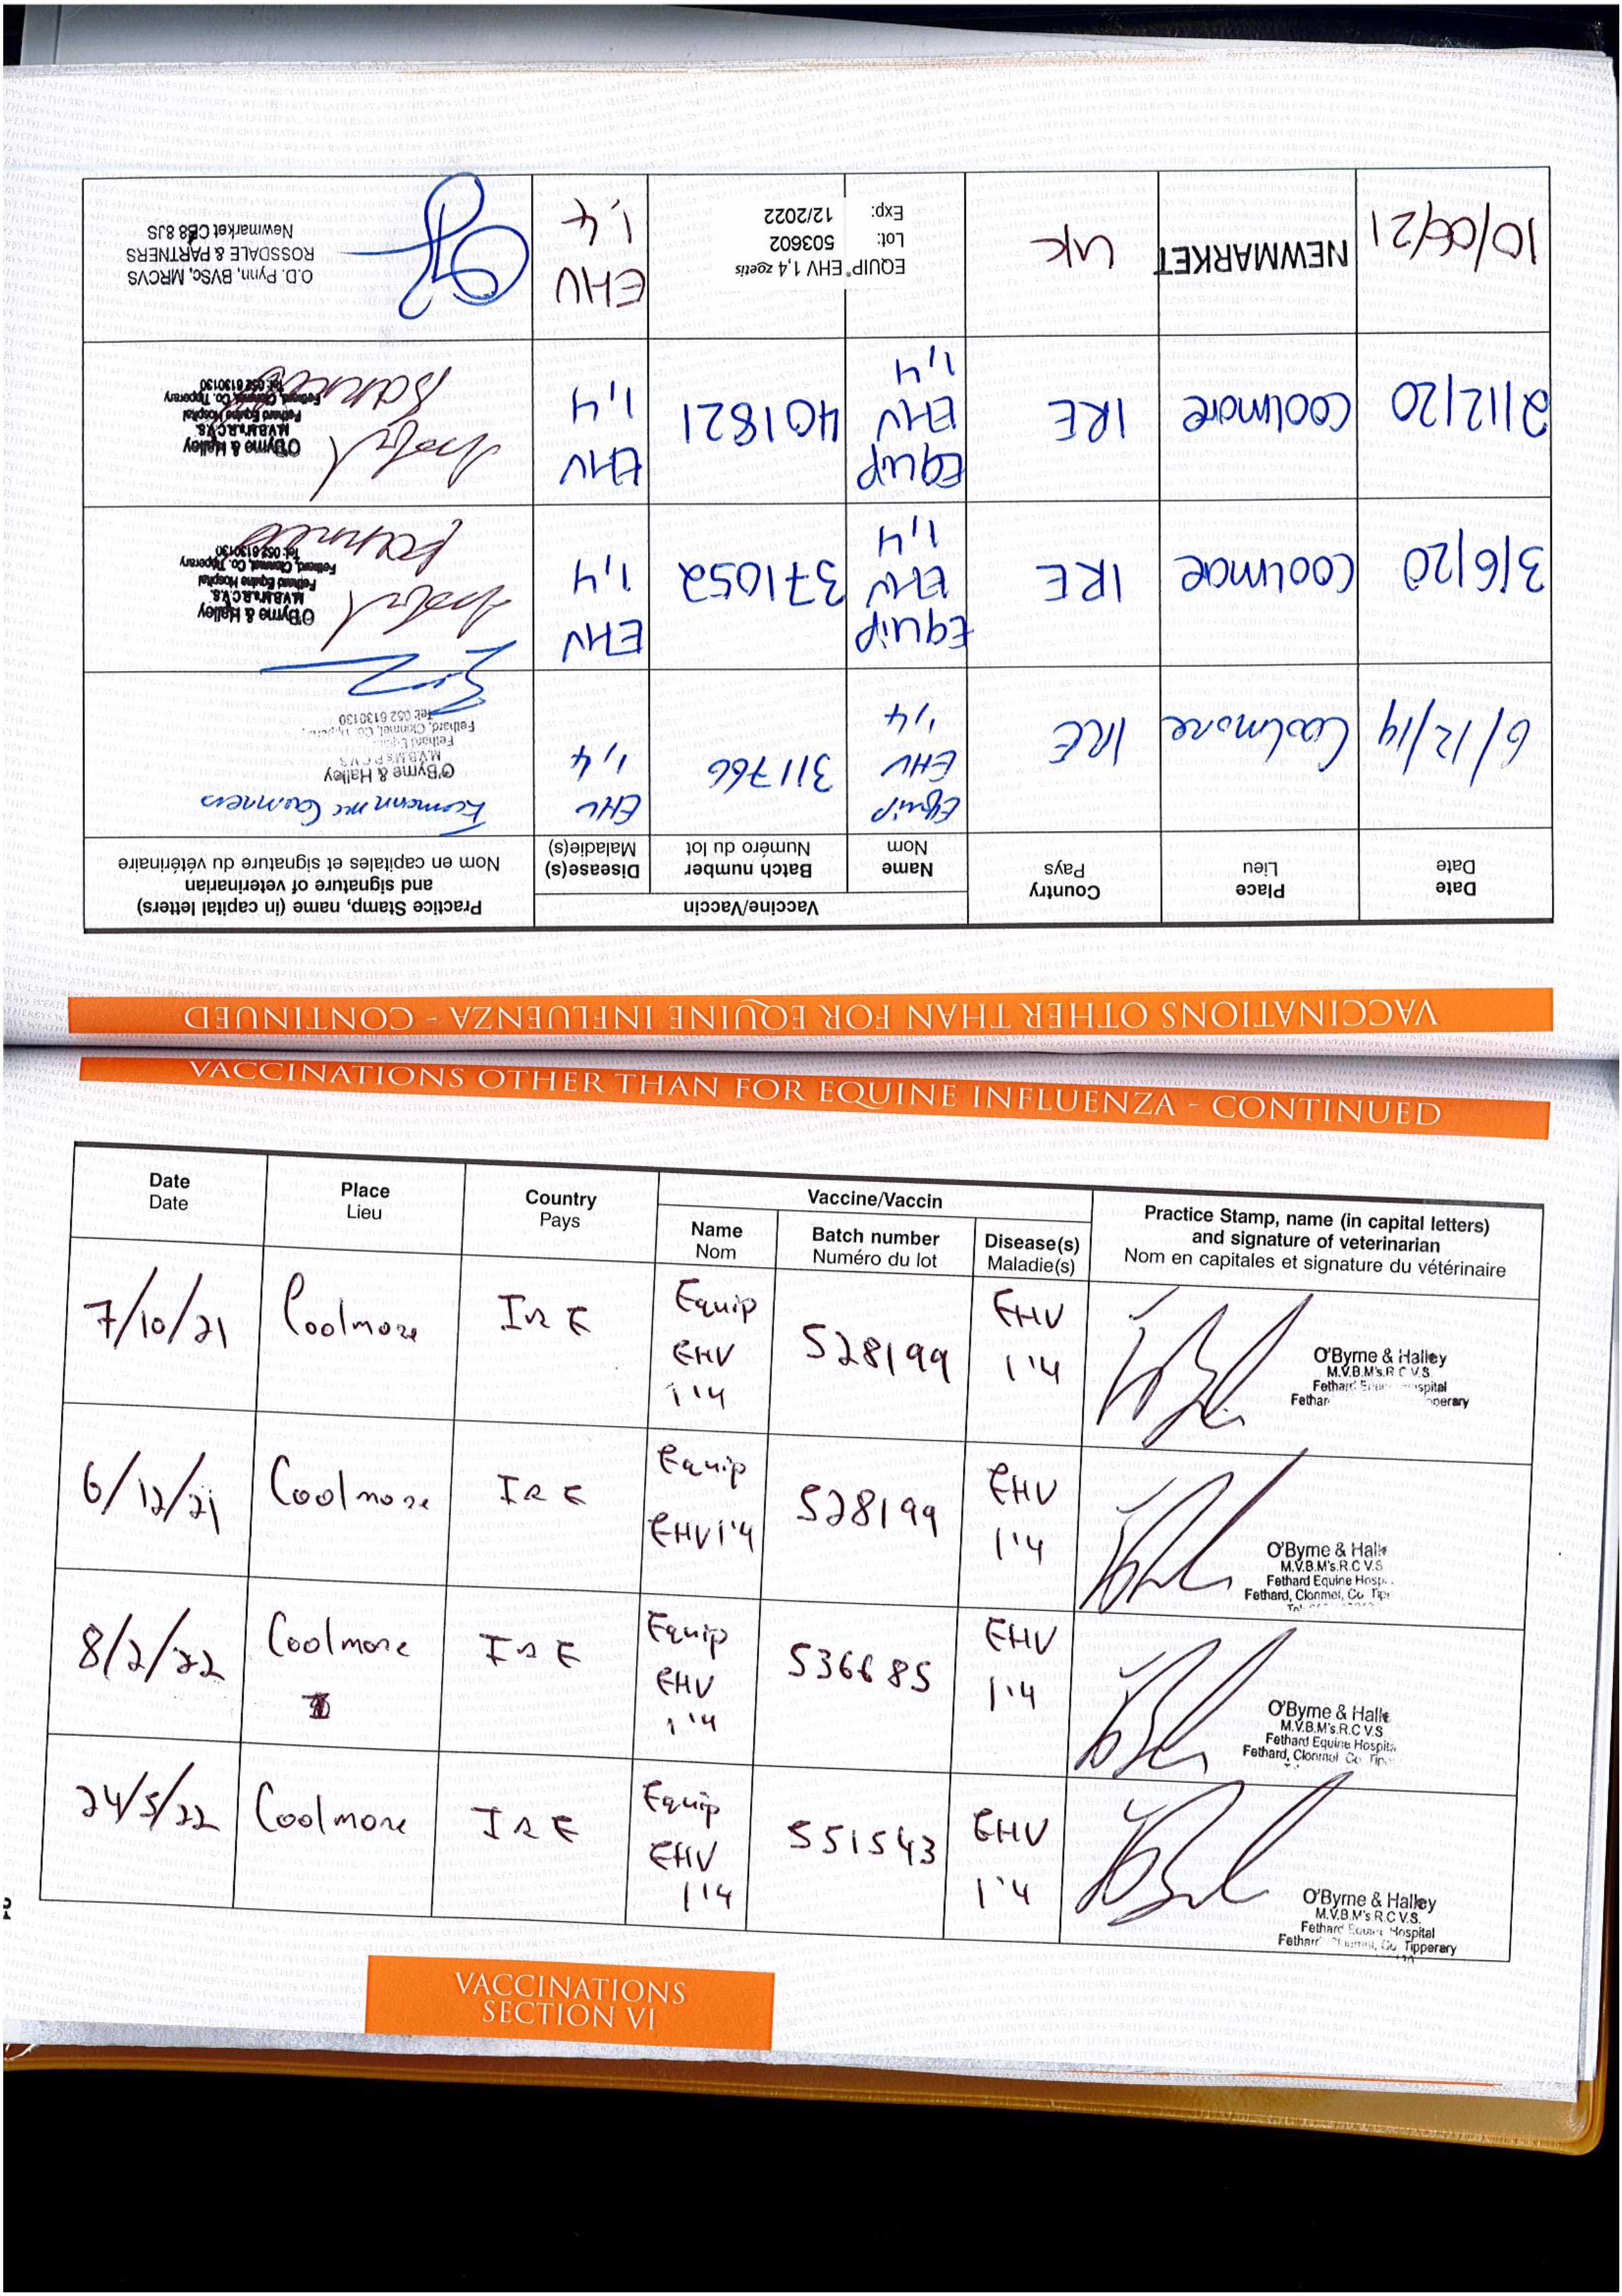 VACCINATIONS OTHER THAN FOR EQUINE INFLUENZA - CONTINUED
Date
Date
Place
Lieu
Country
Pays
Vaccine/Vaccin
Name
Nom
Batch number
Numéro du lot
Disease(s)
Maladie(s)
Practice Stamp, name (in capital letters)
and signature of veterinarian
Nom en capitales et signature du vétérinaire
6/12/14
Coolmore
IRE
Equip
EHV
1,4
311766
EHV
1,4
O'Byrne & Halley
M.V.B.M's R C V S
Fethard
Fethard, Clonmel, Co.
Tel: 052 6130130
3/6/20
Coolmore
IRE
Equip
EHV
1,4
371052
EHV
1,4
O'Byrne & Halley
M.V.B.M's R.C.V.S.
Fethard Equine Hospital
Fethard, Clonmel, Co. Tipperary
Tel: 052 6130130
2/12/20
Coolmore
IRE
Equip
EHV
1,4
401821
EHV
1,4
O'Byrne & Halley
M.V.B.M's R.C.V.S.
Fethard Equine Hospital
Fethard, Clonmel, Co. Tipperary
Tel: 052 6130130
10/06/21
NEWMARKET
UK
EQUIP® EHV 1,4 zoetis
Lot: 503602
Exp: 12/2022
EHV
1,4
O.D. Pynn, BVSc, MRCVS
ROSSDALE & PARTNERS
Newmarket CB8 8JS
VACCINATIONS OTHER THAN FOR EQUINE INFLUENZA - CONTINUED
Date
Date
Place
Lieu
Country
Pays
Vaccine/Vaccin
Name
Nom
Batch number
Numéro du lot
Disease(s)
Maladie(s)
Practice Stamp, name (in capital letters)
and signature of veterinarian
Nom en capitales et signature du vétérinaire
7/10/21
Coolmore
IRE
Equip
EHV
1'4
528199
EHV
1'4
O'Byrne & Halley
M.V.B.M's.R C V.S
Fethard
7/10/21
6/12/21
Coolmore
IRE
Equip
EHV1'4
528199
EHV
1'4
O'Byrne & Hall
M.V.B.M's.R.C V.S
Fethard Equine Hosp
Fethard, Clonmel, Co Tip
8/2/22
Coolmore
IRE
Equip
EHV
1'4
536685
EHV
1'4
O'Byrne & Halle
M.V.B.M's.R.C V.S
Fethard Equine Hospita
Fethard, Clonmel Co Tip
24/5/22
Coolmore
IRE
Equip
EHV
1'4
551543
EHV
1'4
O'Byrne & Halley
M.V.B.M's R.C.V.S.
Fethard Equine Hospital
Fethard Clonmel, Co Tipperary
VACCINATIONS
SECTION VI